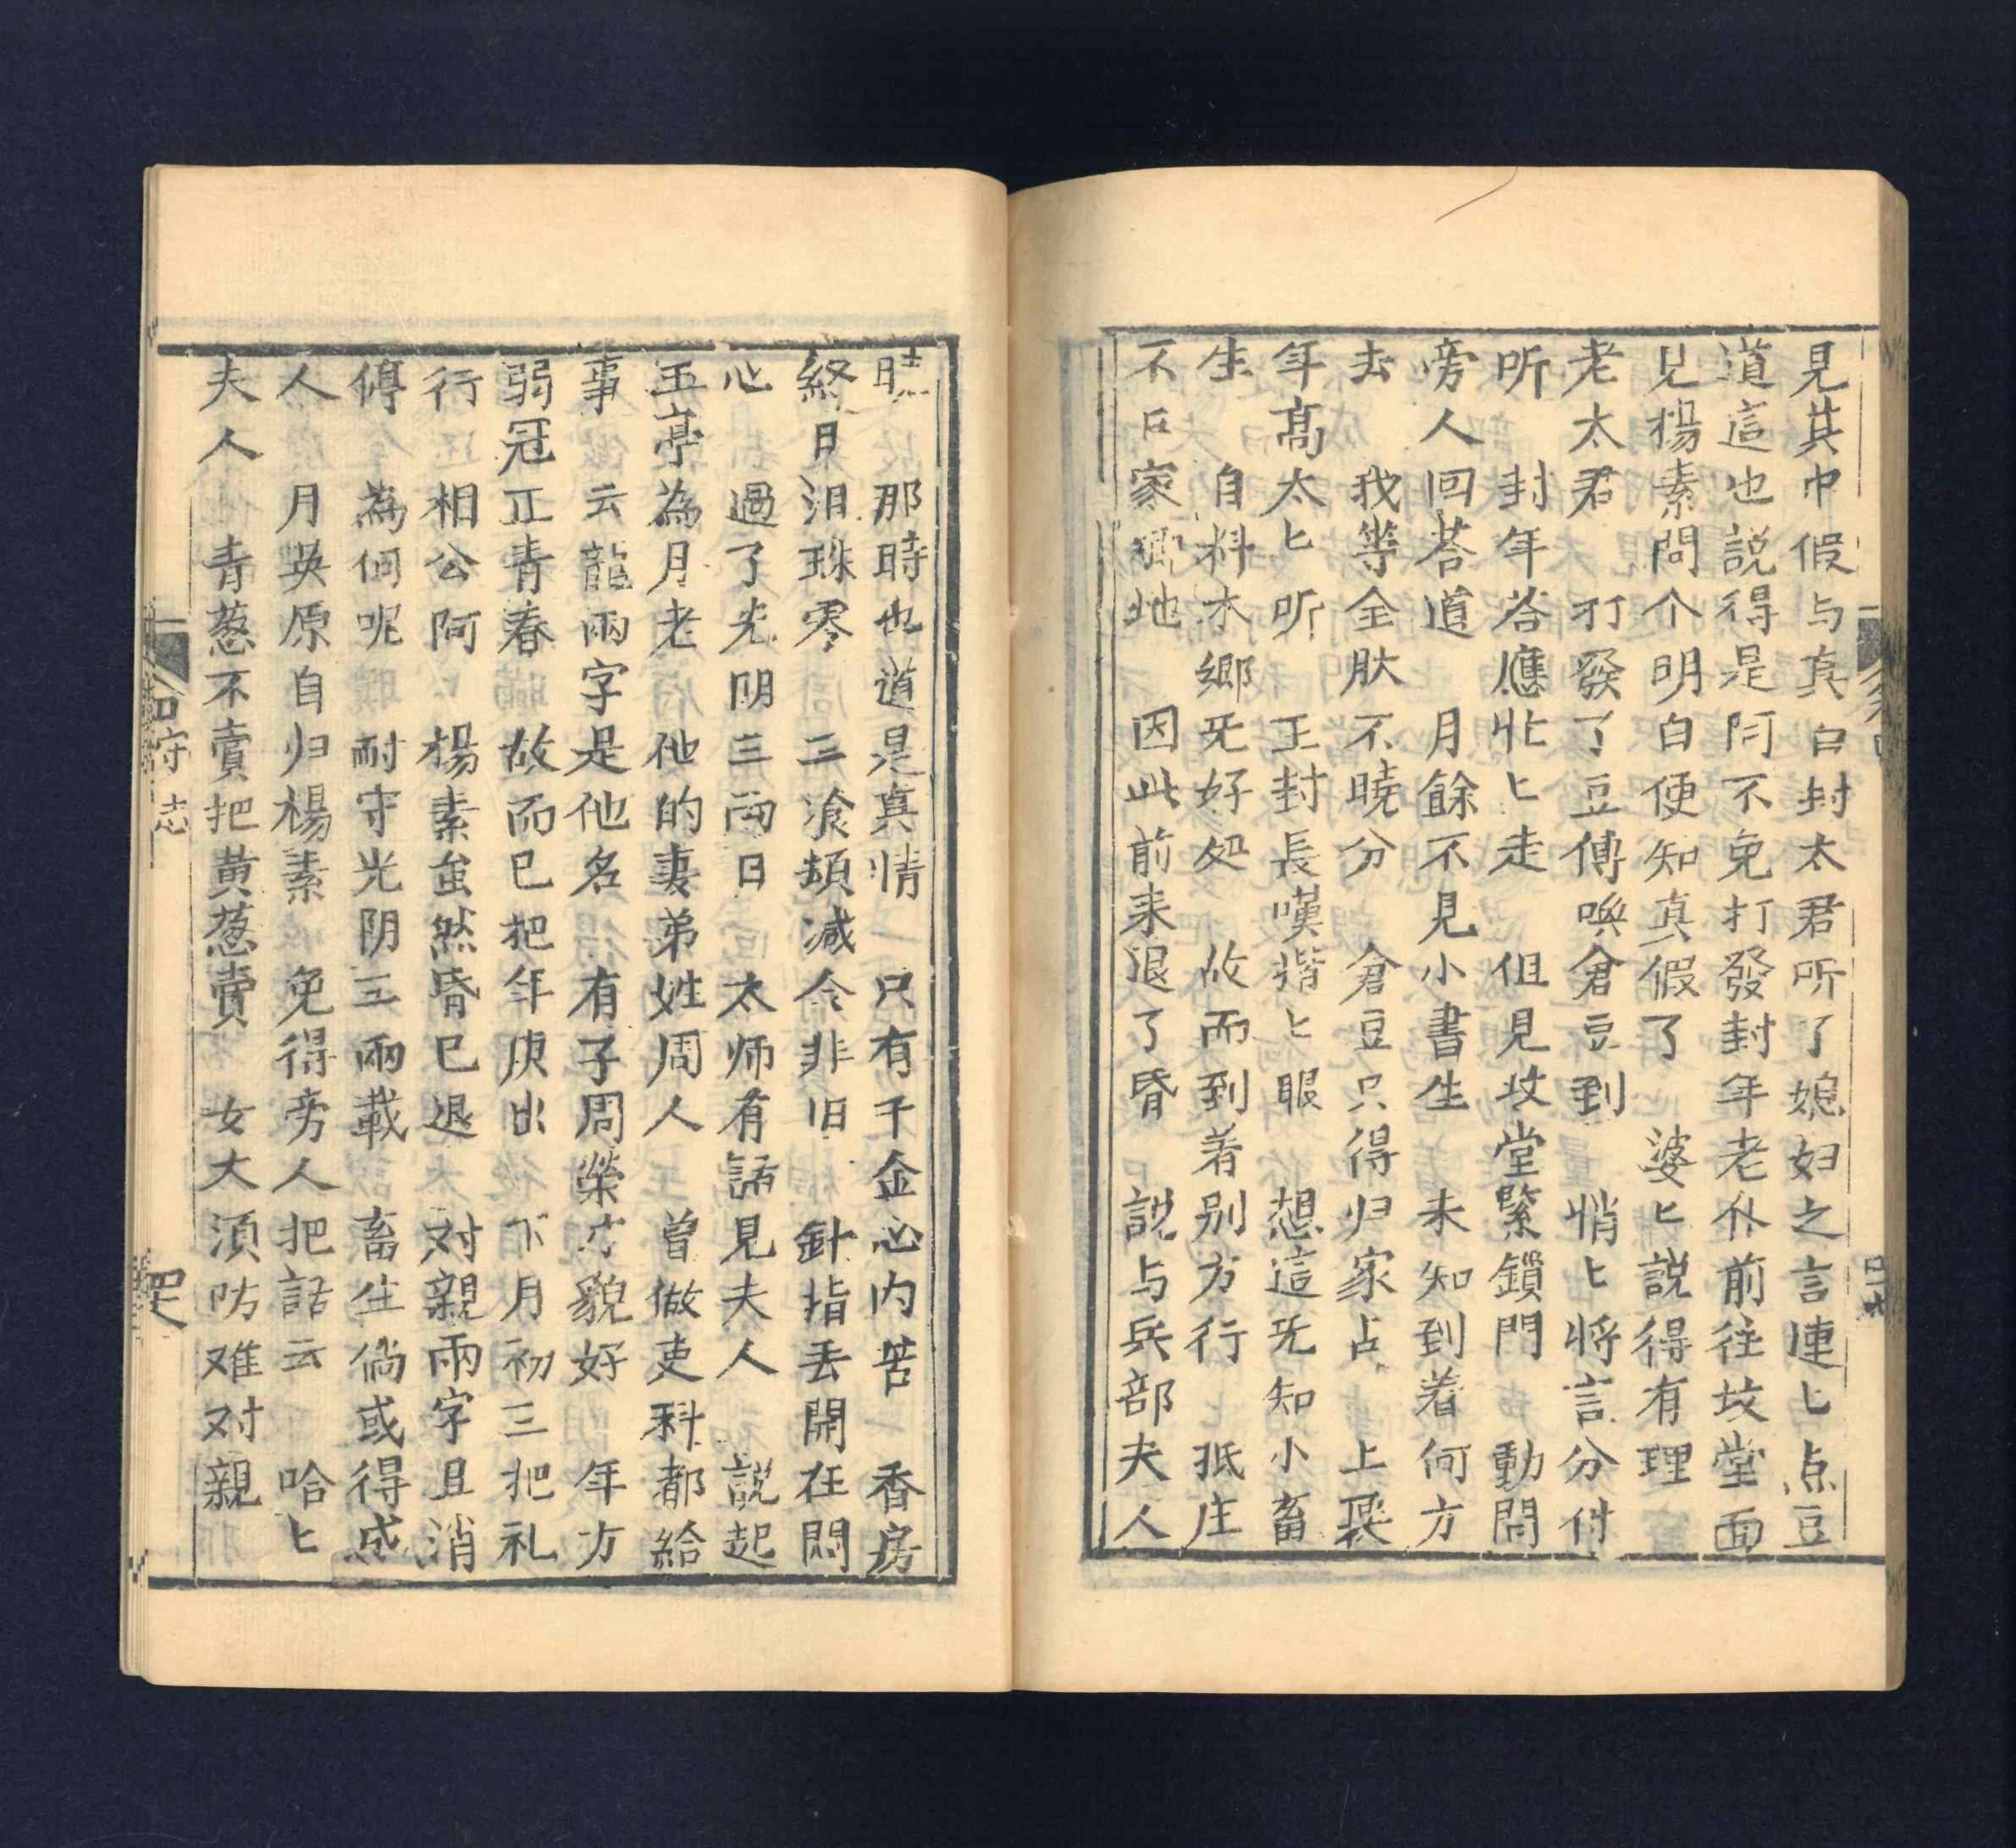 見其中假与真白封太君听了媳妇之言連匕点豆
道這也説得是阿不免打發封年老仆前往坟堂面
見楊素問个明白便知真假了　婆匕説得有理
老太君　打發了豆傅喚倉豆到　悄匕將言分付
听　封年答應壯匕走　但見坟堂緊鎖門　動問
旁人回荅道　月餘不見小書生　未知到着何方
去　我等全肰不曉分　倉豆只得归家占　上稟
年髙太匕听　王封長嘆揩匕眼　想這旡知小畜
生　自料本鄉旡好处　故而到着别方行　抵庄
不　家鄉地　因此前来退了昏　説与兵部夫人
聴　那時也道是真情　只有千金心内苦　香房
終日泪珠零　二飡頓减今非旧　針指丢開在悶
心　過了光阴三両日　太师有語見夫人　説起
玉亭為月老　他的妻弟姓周人　曽做吏科都給
事　云龍兩字是他名　有子周榮才貌好　年方
弱冠正青春　故而已把年庚出　下月初三把礼
行　相公阿　楊素虽然昏已退　对親兩字且消
停　為何呢　耐守光阴三兩載　畜生倘或得成
人　月英原自归楊素　免得旁人把話云　哈匕
夫人　青葱不賣把黄葱賣　女大湏防难对親
守志